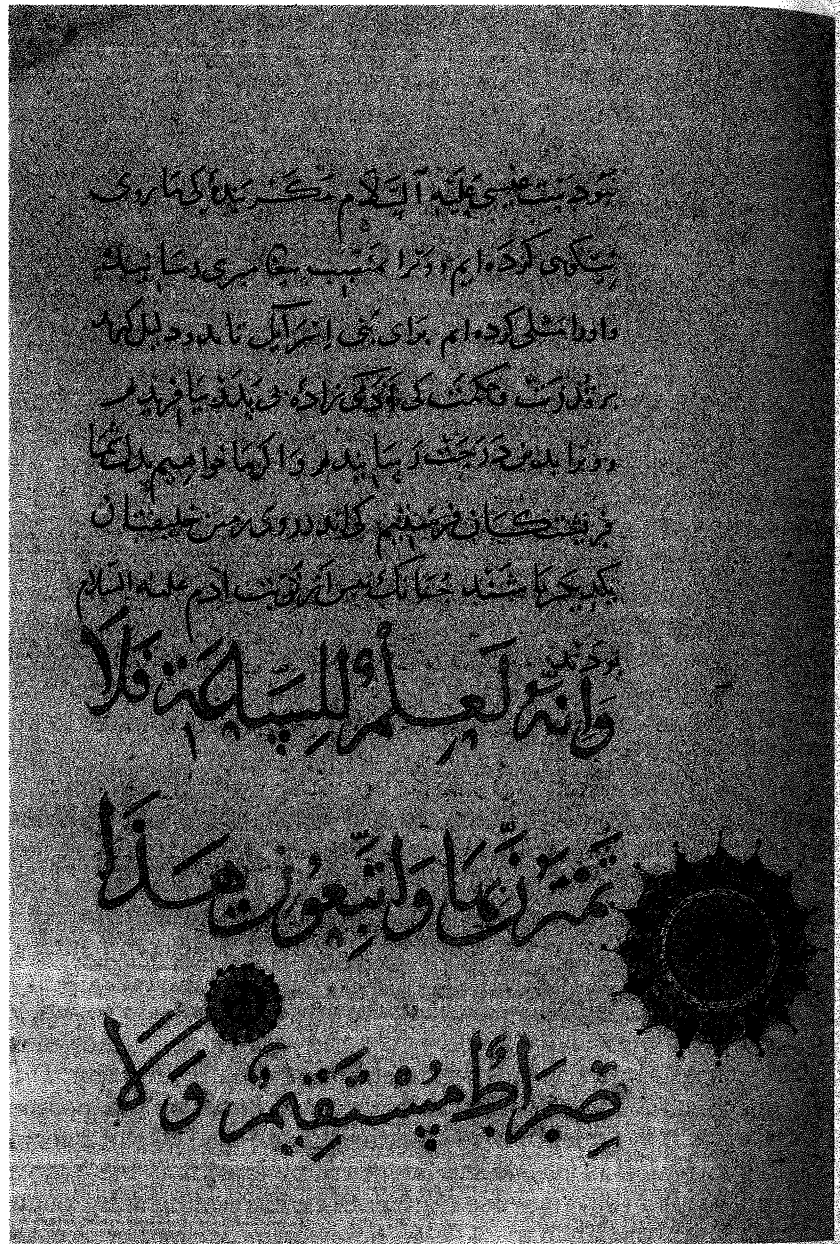 نبود بنت عیسی علیه السلام مگر بنده کی ما بروی
نیکهی کرده‌ایم و ورا منصب پیغامبری و شایستگی
داد و را مثلی کرده‌ایم برای بنی اسرآئیل تا بدو دلیل کهد
بر قدرت و حکمت کی آدمی زاده بی پدر بیافریدیم
و ورا بدین درجت رسانیدیم و اگر ما خواهیم بدل شما
فریشتگان فرستیم کی اندر روی زمین خلیفتان
یکدیگر باشند چنانک پیش از نوبت آدم علیه السلام
بودند
وَاِنَّهُ لَعِلْمٌ لِلسَّاعَةِ فَلَا
تَمْتَرُنَّ بِهَا وَاتَّبِعُونِ هَذَا
صِرَاطٌ مُسْتَقِيمٌ وَلَا